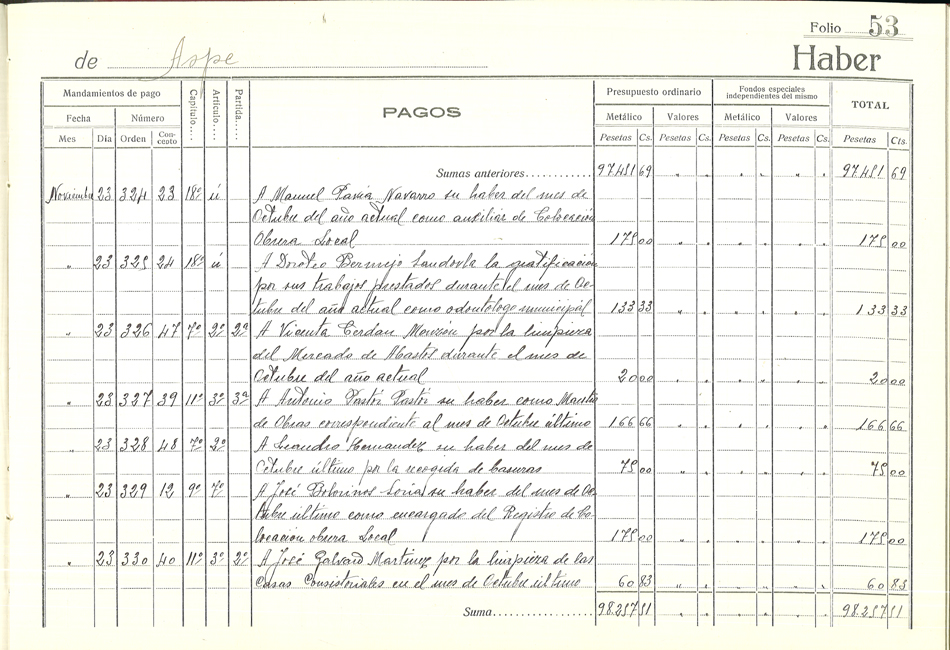 Folio 53
de Aspe Haber
Mandamientos de pago Capítulo.... Artículo... Partida..... PAGOS Presupuesto ordinario Fondos especiales independientes del mismo TOTAL
Fecha Número Metálico Valores Metálico Valores
Mes Día Orden Concepto Pesetas Cs. Pesetas Cs. Pesetas Cs. Pesetas Cs. Pesetas Cts.
Sumas anteriores............ 97.451 69 " " " " " " 97.451 69
Noviembre 23 324 23 18º ú A Manuel Pavía Navarro su haber del mes de
Octubre del año actual como auxiliar de Colocación
Obrera Local 175 00 " " " " " " 175 00
" 23 325 24 18º ú A Doroteo Bermejo Sandovla la gratificación
por sus trabajos prestados durante el mes de Oc-
tubre del año actual como odontólogo municipal 133 33 " " " " " " 133 33
" 23 326 47 7º 2º 2ª A Vicenta Cerdan Monzón por la limpieza
del Mercado de Abastos durante el mes de
Octubre del año actual 20 00 " " " " " " 20 00
" 23 327 39 11º 3º 3ª A Antonio Pastor Pastor su haber como Maestro
de Obras correspondiente al mes de Octubre último 166 66 " " " " " " 166 66
" 23 328 48 7º 2º A Leandro Hernandez su haber del mes de
Octubre último por la recogida de basuras 75 00 " " " " " " 75 00
" 23 329 12 9º 7º A José Bolorinos Soria su haber del mes de Oc-
tubre último como encargado del Registro de Co-
locación obrera Local 175 00 " " " " " " 175 00
" 23 330 40 11º 3º 2º A José Galvañ Martinez por la limpieza de las
Casas Consistoriales en el mes de Octubre último 60 83 " " " " " " 60 83
Suma...................... 98.257 51 " " " " " " 98.257 51